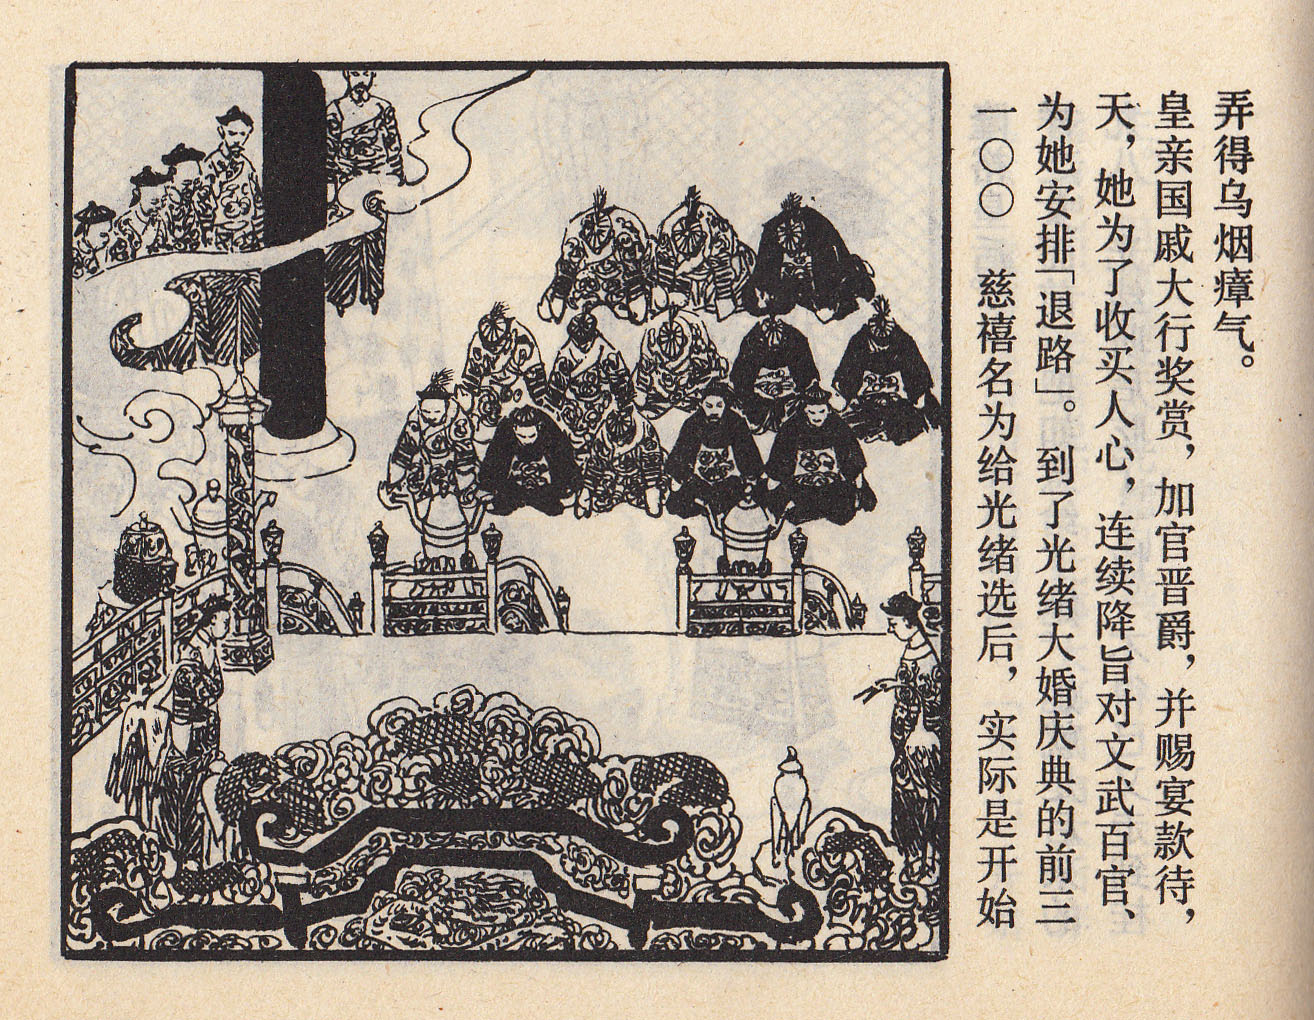 一〇〇 慈禧名为给光绪选后，实际是开始
为她安排「退路」。到了光绪大婚庆典的前三
天，她为了收买人心，连续降旨对文武百官、
皇亲国戚大行奖赏，加官晋爵，并赐宴款待，
弄得乌烟瘴气。